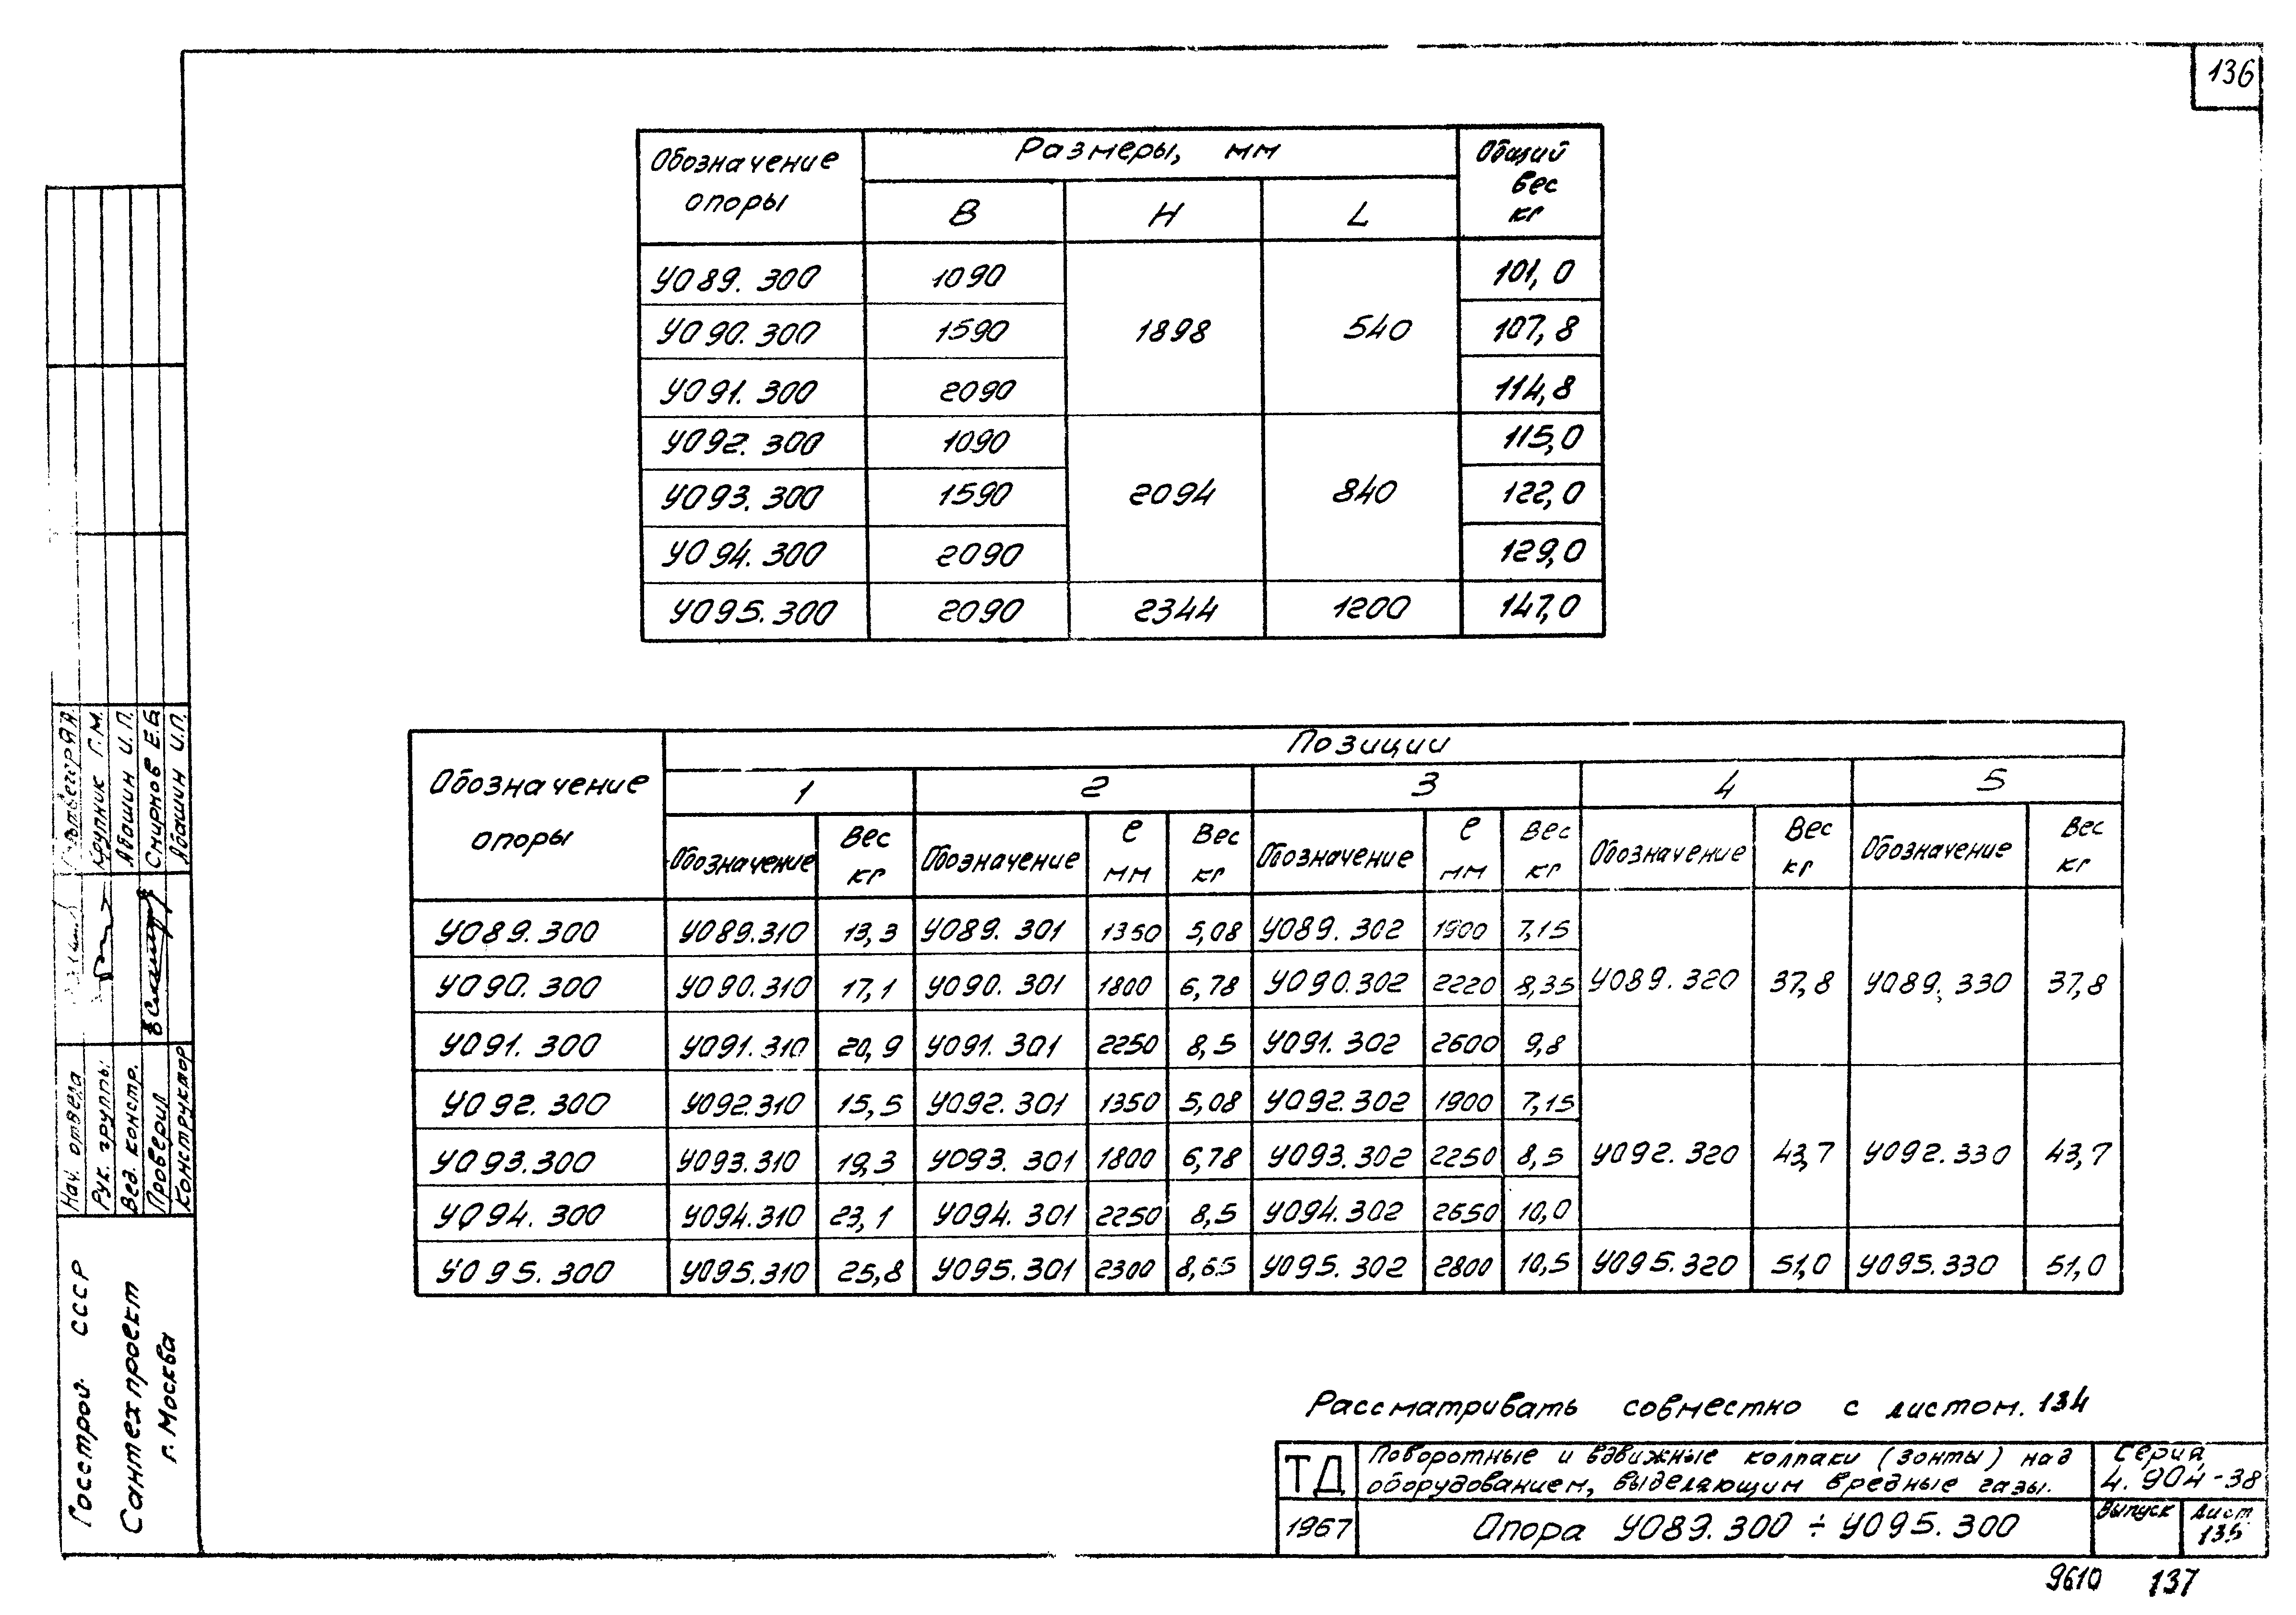 136
Обозначение опоры | Размеры, мм | Общий вес кг
B | H | L
У089.300 | 1090 | 1898 | 540 | 101,0
У090.300 | 1590 | 107,8
У091.300 | 2090 | 114,8
У092.300 | 1090 | 2094 | 840 | 115,0
У093.300 | 1590 | 122,0
У094.300 | 2090 | 129,0
У095.300 | 2090 | 2344 | 1200 | 147,0
Обозначение опоры | Позиции
1 | 2 | 3 | 4 | 5
Обозначение | Вес кг | Обозначение | ℓ мм | Вес кг | Обозначение | ℓ мм | Вес кг | Обозначение | Вес кг | Обозначение | Вес кг
У089.300 | У089.310 | 13,3 | У089.301 | 1350 | 5,08 | У089.302 | 1900 | 7,15
У090.300 | У090.310 | 17,1 | У090.301 | 1800 | 6,78 | У090.302 | 2220 | 8,35 | У089.320 | 37,8 | У089.330 | 37,8
У091.300 | У091.310 | 20,9 | У091.301 | 2250 | 8,5 | У091.302 | 2600 | 9,8
У092.300 | У092.310 | 15,5 | У092.301 | 1350 | 5,08 | У092.302 | 1900 | 7,15
У093.300 | У093.310 | 19,3 | У093.301 | 1800 | 6,78 | У093.302 | 2250 | 8,5 | У092.320 | 43,7 | У092.330 | 43,7
У094.300 | У094.310 | 23,1 | У094.301 | 2250 | 8,5 | У094.302 | 2650 | 10,0
У095.300 | У095.310 | 25,8 | У095.301 | 2300 | 8,65 | У095.302 | 2800 | 10,5 | У095.320 | 51,0 | У095.330 | 51,0
Рассматривать совместно с листом. 134
ТД
Поворотные и вдвижные колпаки (зонты) над
оборудованием, выделяющим вредные газы.
Серия
4.904-38
1967
Опора У089.300 ÷ У095.300
Выпуск
Лист
135
9610 137
Госстрой СССР
Сантехпроект
г. Москва
Нач. отдела
Рук. группы Крупник Г.М.
Вед. констр. Абашин И.П.
Проверил Смирнов Е.Б.
Конструктор Абашин И.П.